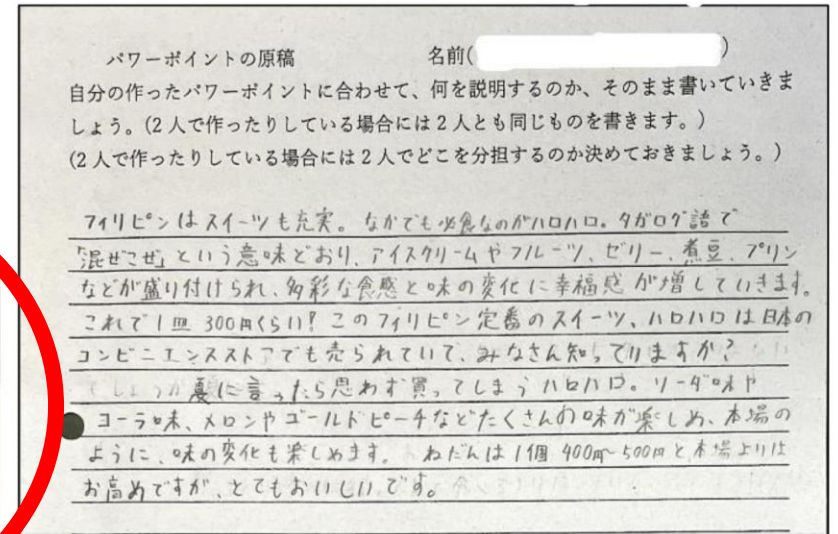 パワーポイントの原稿　名前(　)
自分の作ったパワーポイントに合わせて、何を説明するのか、そのまま書いていきま
しょう。(2人で作ったりしている場合には2人とも同じものを書きます。)
(2人で作ったりしている場合には2人でどこを分担するのか決めておきましょう。)
フィリピンはスイーツも充実。なかでも必食なのがハロハロ。タガログ語で
「混ぜこぜ」という意味どおり、アイスクリームやフルーツ、ゼリー、煮豆、プリン
などが盛り付けられ、多彩な食感と味の変化に幸福感が増していきます。
これで1皿300円くらい!このフィリピン定番のスイーツ、ハロハロは日本の
コンビニエンスストアでも売られていて、みなさん知ってりますか?
夏に言ったら思わず買ってしまうハロハロ。ソーダ味や
コーラ味、メロンやゴールドピーチなどたくさんの味が楽しめ、本場の
ように、味の変化も楽しめます。ねだんは1個400円~500円と本場よりは
お高めですが、とてもおいしいです。